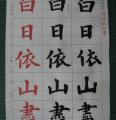 白日依山盡
白日依山盡
白日依山盡